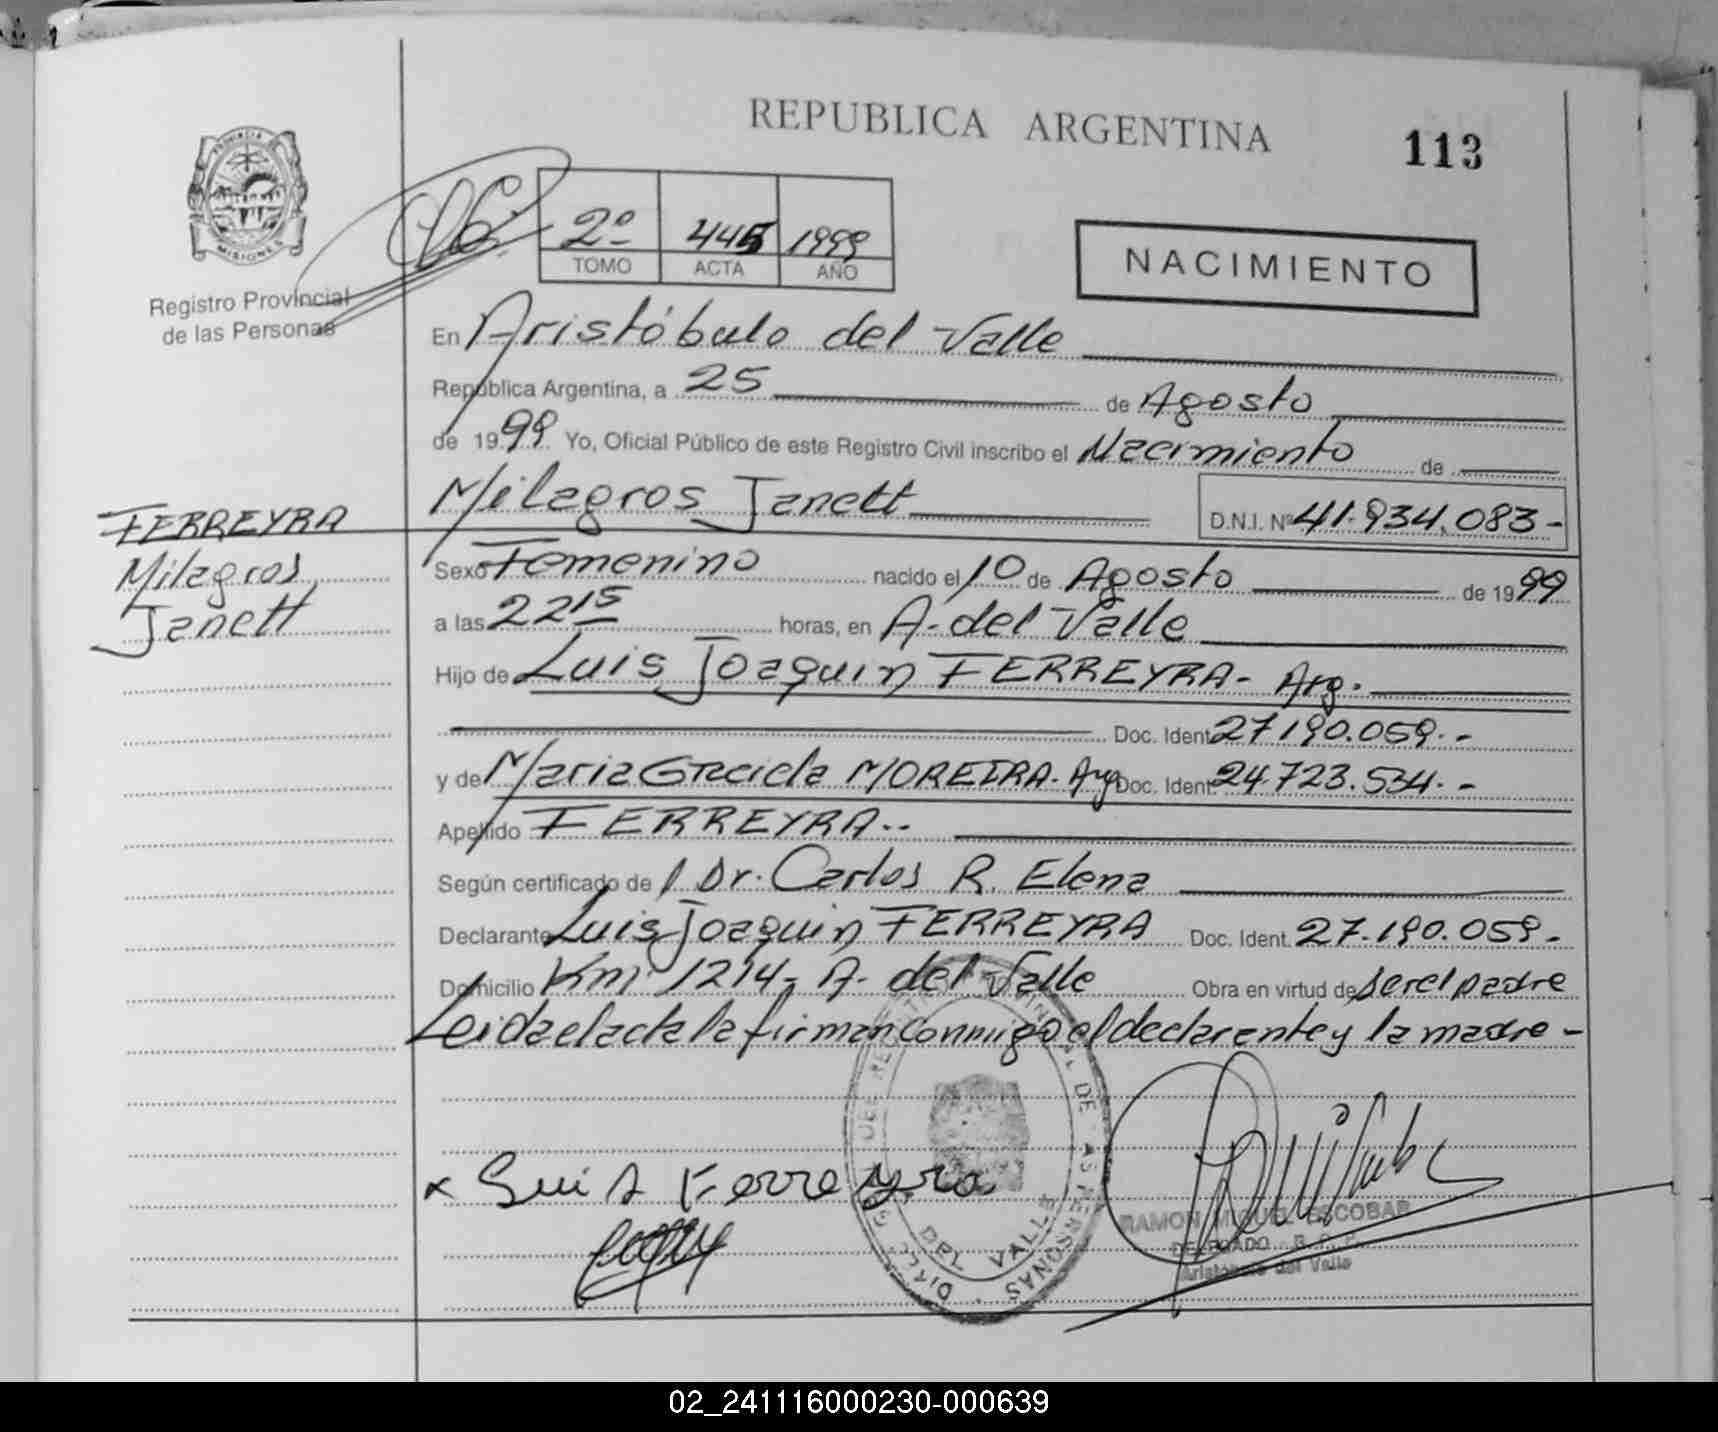 REPUBLICA ARGENTINA
113
PROVINCIA DE
MISIONES
Registro Provincial
de las Personas
2º 445 1999
TOMO ACTA AÑO
NACIMIENTO
En Aristóbulo del Valle
República Argentina, a 25 de Agosto
de 1999 Yo, Oficial Público de este Registro Civil inscribo el Nacimiento de
Milagros Janett D.N.I. Nº 41.934.083-
FERREYRA
Milagros
Janett
Sexo Femenino nacido el 10 de Agosto de 1999
a las 22 15 horas, en A. del Valle
Hijo de Luis Joaquin FERREYRA- Arg.
Doc. Ident. 27.190.059.-
y de Maria Graciela MOREIRA. Arg Doc. Ident. 24.723.534.-
Apellido FERREYRA..
Según certificado de Dr. Carlos R. Elena
Declarante Luis Joaquin FERREYRA Doc. Ident. 27.190.059.
Domicilio Km 1214- A. del Valle Obra en virtud de ser el padre
Leida el acta la firman conmigo el declarante y la madre-
x Luis Ferreyra
DEL VALLE
RAMON MIGUEL ESCOBAR
DELEGADO
Aristóbulo del Valle
02_241116000230-000639